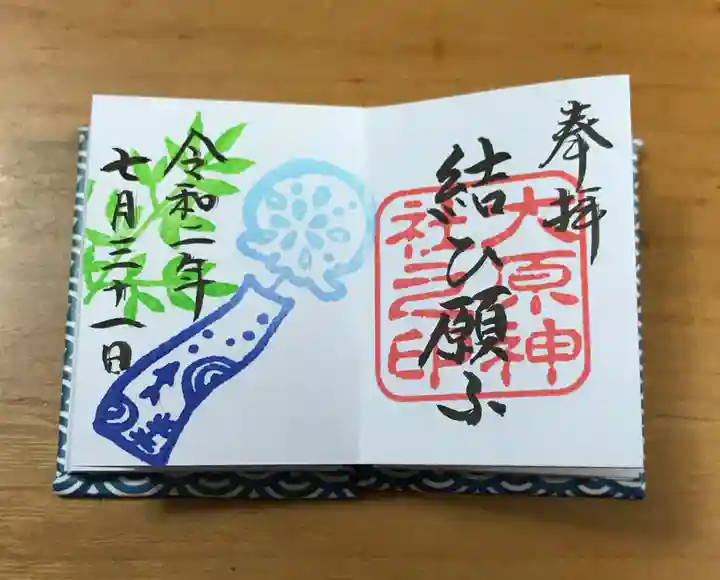 奉拝
結ひ願ふ
大原神
社之印
令和二年
七月三十一日